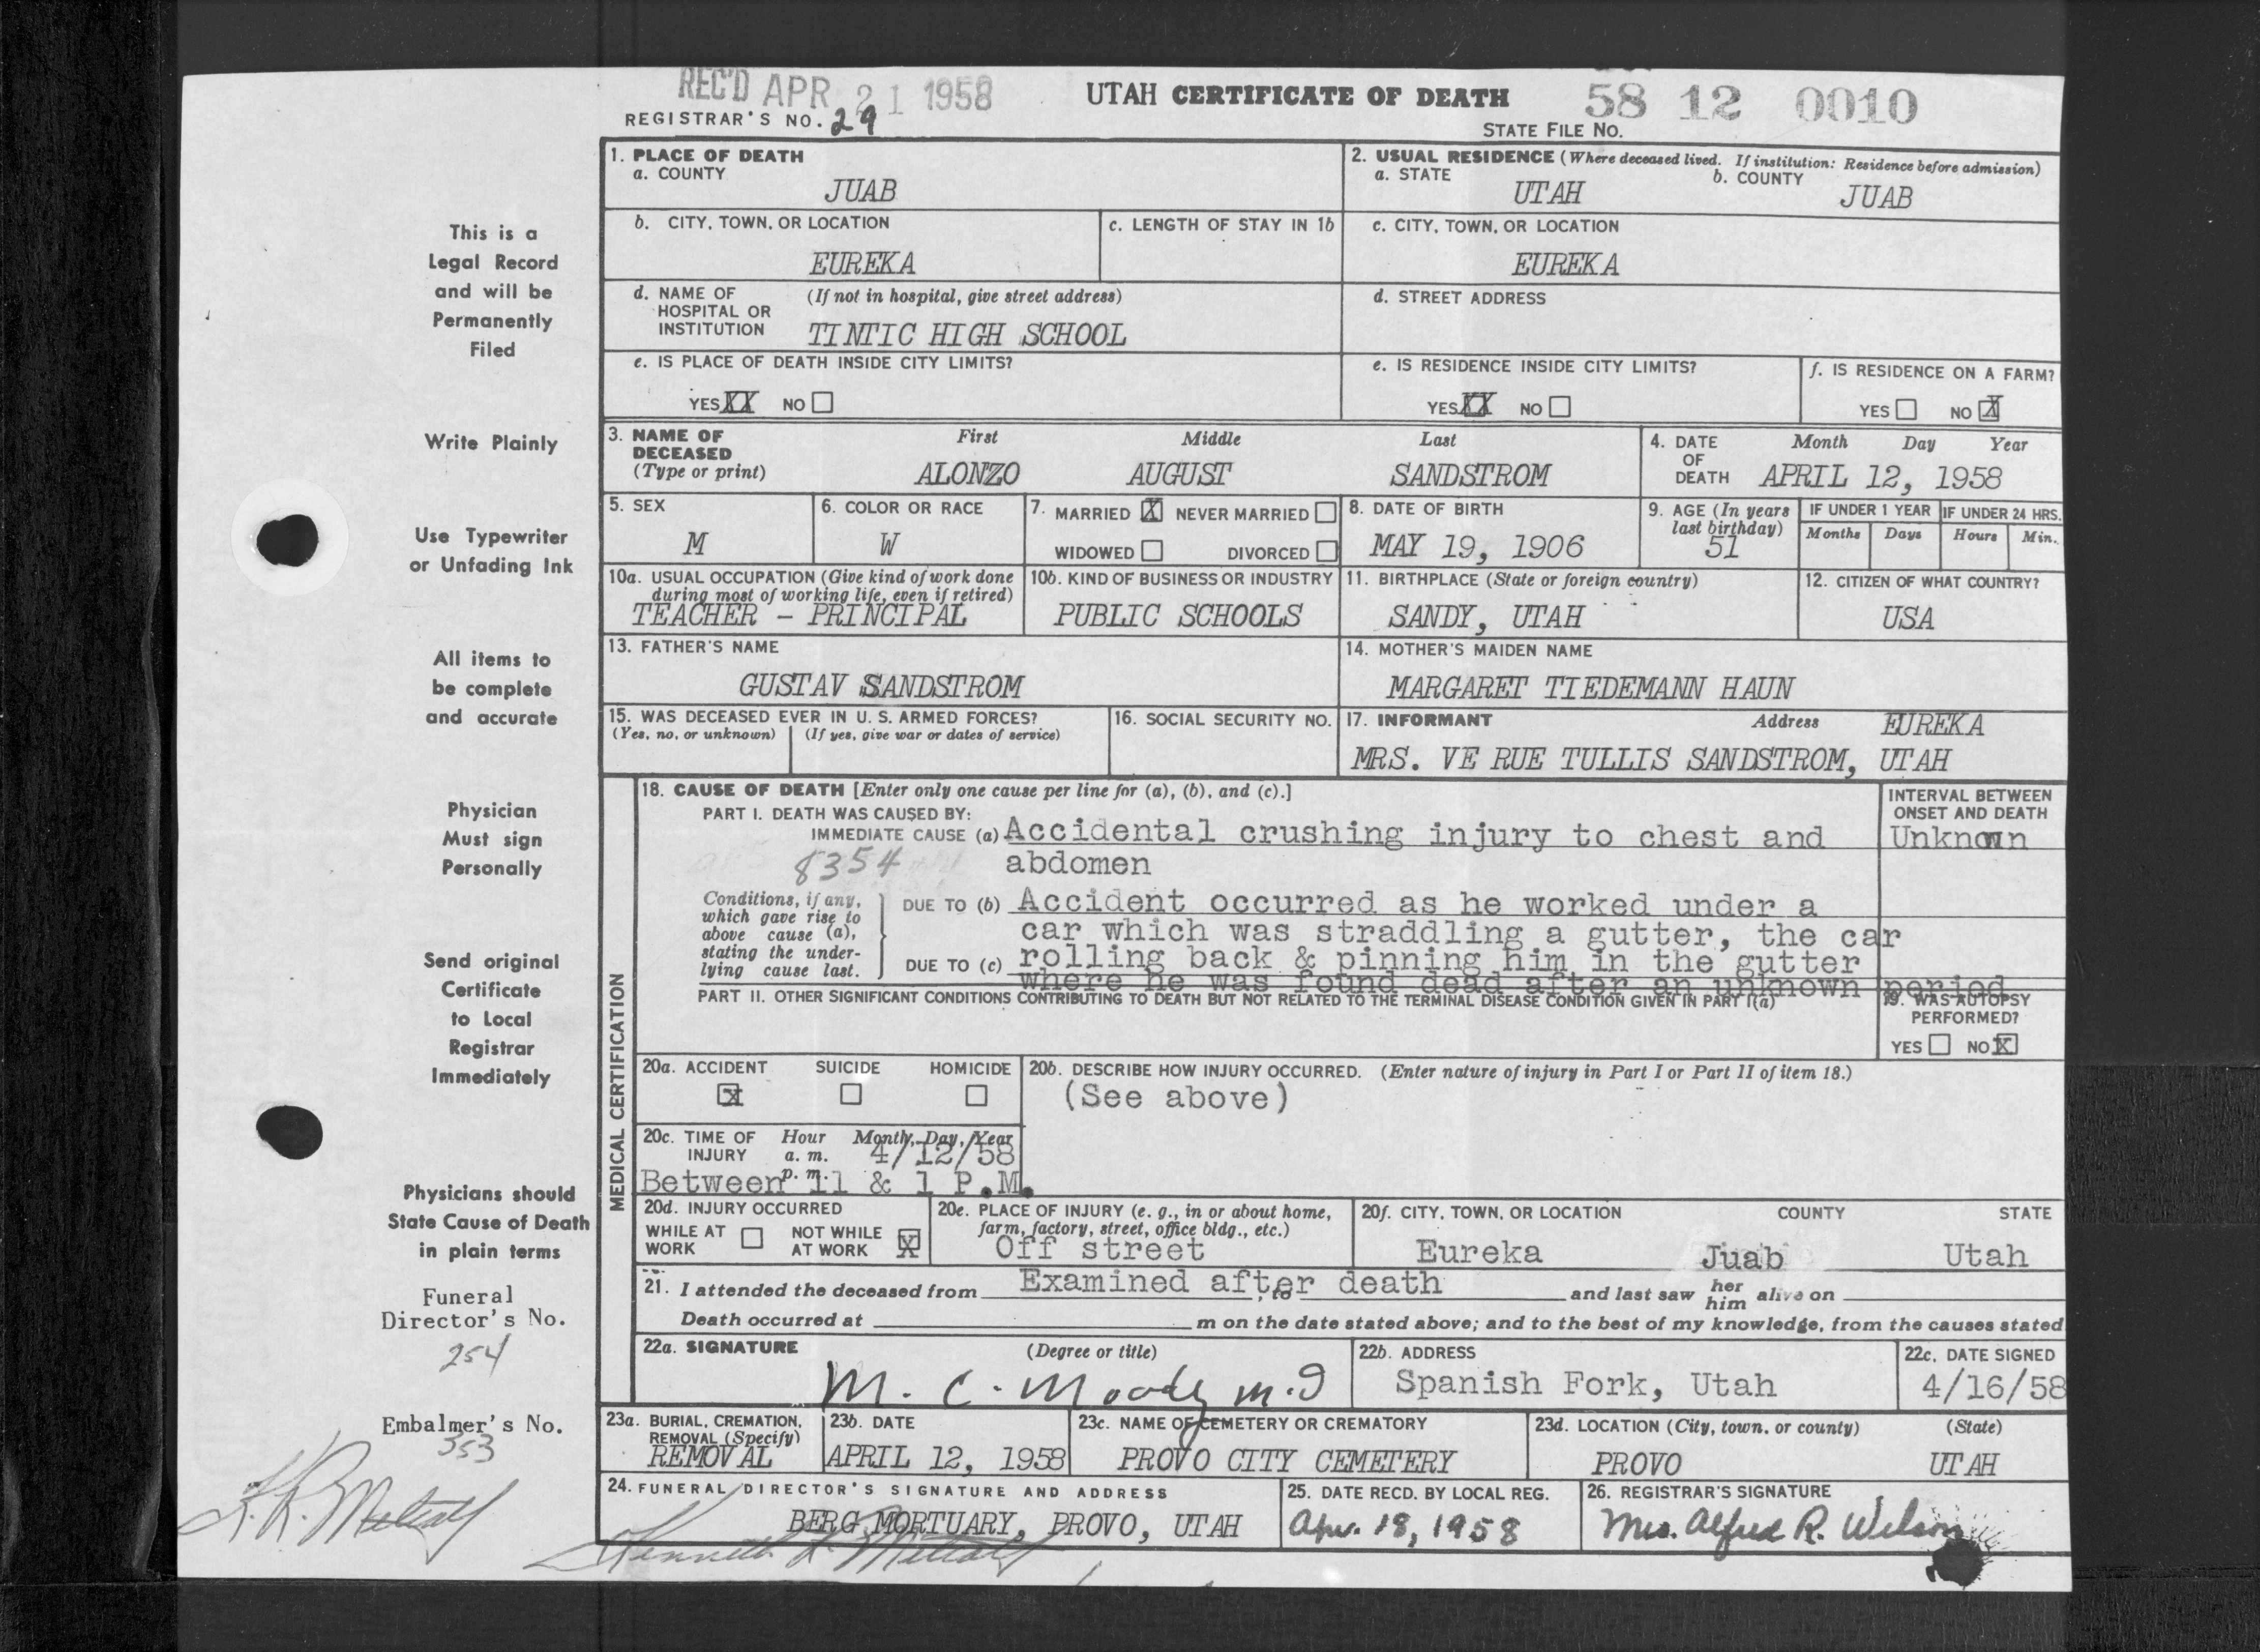 REC'D APR 21 1958
UTAH CERTIFICATE OF DEATH
58 12 0010
REGISTRAR'S NO. 29
STATE FILE NO.
This is a
Legal Record
and will be
Permanently
Filed
Write Plainly
Use Typewriter
or Unfading Ink
All items to
be complete
and accurate
Physician
Must sign
Personally
Send original
Certificate
to Local
Registrar
Immediately
Physicians should
State Cause of Death
in plain terms
Funeral
Director's No.
254
Embalmer's No.
353
1. PLACE OF DEATH
a. COUNTY
JUAB
2. USUAL RESIDENCE (Where deceased lived. If institution: Residence before admission)
a. STATE b. COUNTY
UTAH JUAB
b. CITY, TOWN, OR LOCATION
EUREKA
c. LENGTH OF STAY IN 1b
c. CITY, TOWN, OR LOCATION
EUREKA
d. NAME OF (If not in hospital, give street address)
HOSPITAL OR
INSTITUTION TINTIC HIGH SCHOOL
d. STREET ADDRESS
e. IS PLACE OF DEATH INSIDE CITY LIMITS?
YES XX NO
e. IS RESIDENCE INSIDE CITY LIMITS?
YES XX NO
f. IS RESIDENCE ON A FARM?
YES NO X
3. NAME OF First Middle Last
DECEASED
(Type or print) ALONZO AUGUST SANDSTROM
4. DATE Month Day Year
OF
DEATH APRIL 12, 1958
5. SEX
M
6. COLOR OR RACE
W
7. MARRIED X NEVER MARRIED
WIDOWED DIVORCED
8. DATE OF BIRTH
MAY 19, 1906
9. AGE (In years
last birthday)
51
IF UNDER 1 YEAR IF UNDER 24 HRS.
Months Days Hours Min.
10a. USUAL OCCUPATION (Give kind of work done
during most of working life, even if retired)
TEACHER - PRINCIPAL
10b. KIND OF BUSINESS OR INDUSTRY
PUBLIC SCHOOLS
11. BIRTHPLACE (State or foreign country)
SANDY, UTAH
12. CITIZEN OF WHAT COUNTRY?
USA
13. FATHER'S NAME
GUSTAV SANDSTROM
14. MOTHER'S MAIDEN NAME
MARGARET TIEDEMANN HAUN
15. WAS DECEASED EVER IN U. S. ARMED FORCES?
(Yes, no, or unknown) (If yes, give war or dates of service)
16. SOCIAL SECURITY NO.
17. INFORMANT Address EUREKA
MRS. VE RUE TULLIS SANDSTROM, UTAH
MEDICAL CERTIFICATION
18. CAUSE OF DEATH [Enter only one cause per line for (a), (b), and (c).]
INTERVAL BETWEEN
ONSET AND DEATH
PART I. DEATH WAS CAUSED BY:
IMMEDIATE CAUSE (a) Accidental crushing injury to chest and Unknown
8354 abdomen
Conditions, if any,
which gave rise to
above cause (a),
stating the under-
lying cause last.
DUE TO (b) Accident occurred as he worked under a
car which was straddling a gutter, the car
DUE TO (c) rolling back & pinning him in the gutter
where he was found dead after an unknown period
PART II. OTHER SIGNIFICANT CONDITIONS CONTRIBUTING TO DEATH BUT NOT RELATED TO THE TERMINAL DISEASE CONDITION GIVEN IN PART I(a)
19. WAS AUTOPSY
PERFORMED?
YES NO X
20a. ACCIDENT SUICIDE HOMICIDE
X
20b. DESCRIBE HOW INJURY OCCURRED. (Enter nature of injury in Part I or Part II of item 18.)
(See above)
20c. TIME OF Hour Month, Day, Year
INJURY a. m. 4/12/58
p. m.
Between 11 & 1 P.M.
20d. INJURY OCCURRED
WHILE AT WORK NOT WHILE AT WORK X
20e. PLACE OF INJURY (e. g., in or about home,
farm, factory, street, office bldg., etc.)
Off street
20f. CITY, TOWN, OR LOCATION COUNTY STATE
Eureka Juab Utah
21. I attended the deceased from Examined after death , to and last saw her him alive on
Death occurred at m on the date stated above; and to the best of my knowledge, from the causes stated
22a. SIGNATURE (Degree or title)
M. C. Moody M.D
22b. ADDRESS
Spanish Fork, Utah
22c. DATE SIGNED
4/16/58
23a. BURIAL, CREMATION,
REMOVAL (Specify)
REMOVAL
23b. DATE
APRIL 12, 1958
23c. NAME OF CEMETERY OR CREMATORY
PROVO CITY CEMETERY
23d. LOCATION (City, town, or county) (State)
PROVO UTAH
24. FUNERAL DIRECTOR'S SIGNATURE AND ADDRESS
BERG MORTUARY, PROVO, UTAH
25. DATE RECD. BY LOCAL REG.
Apr. 18, 1958
26. REGISTRAR'S SIGNATURE
Mrs. Alfred R. Wilson
K. R. Metcalf
Kenneth R Metcalf